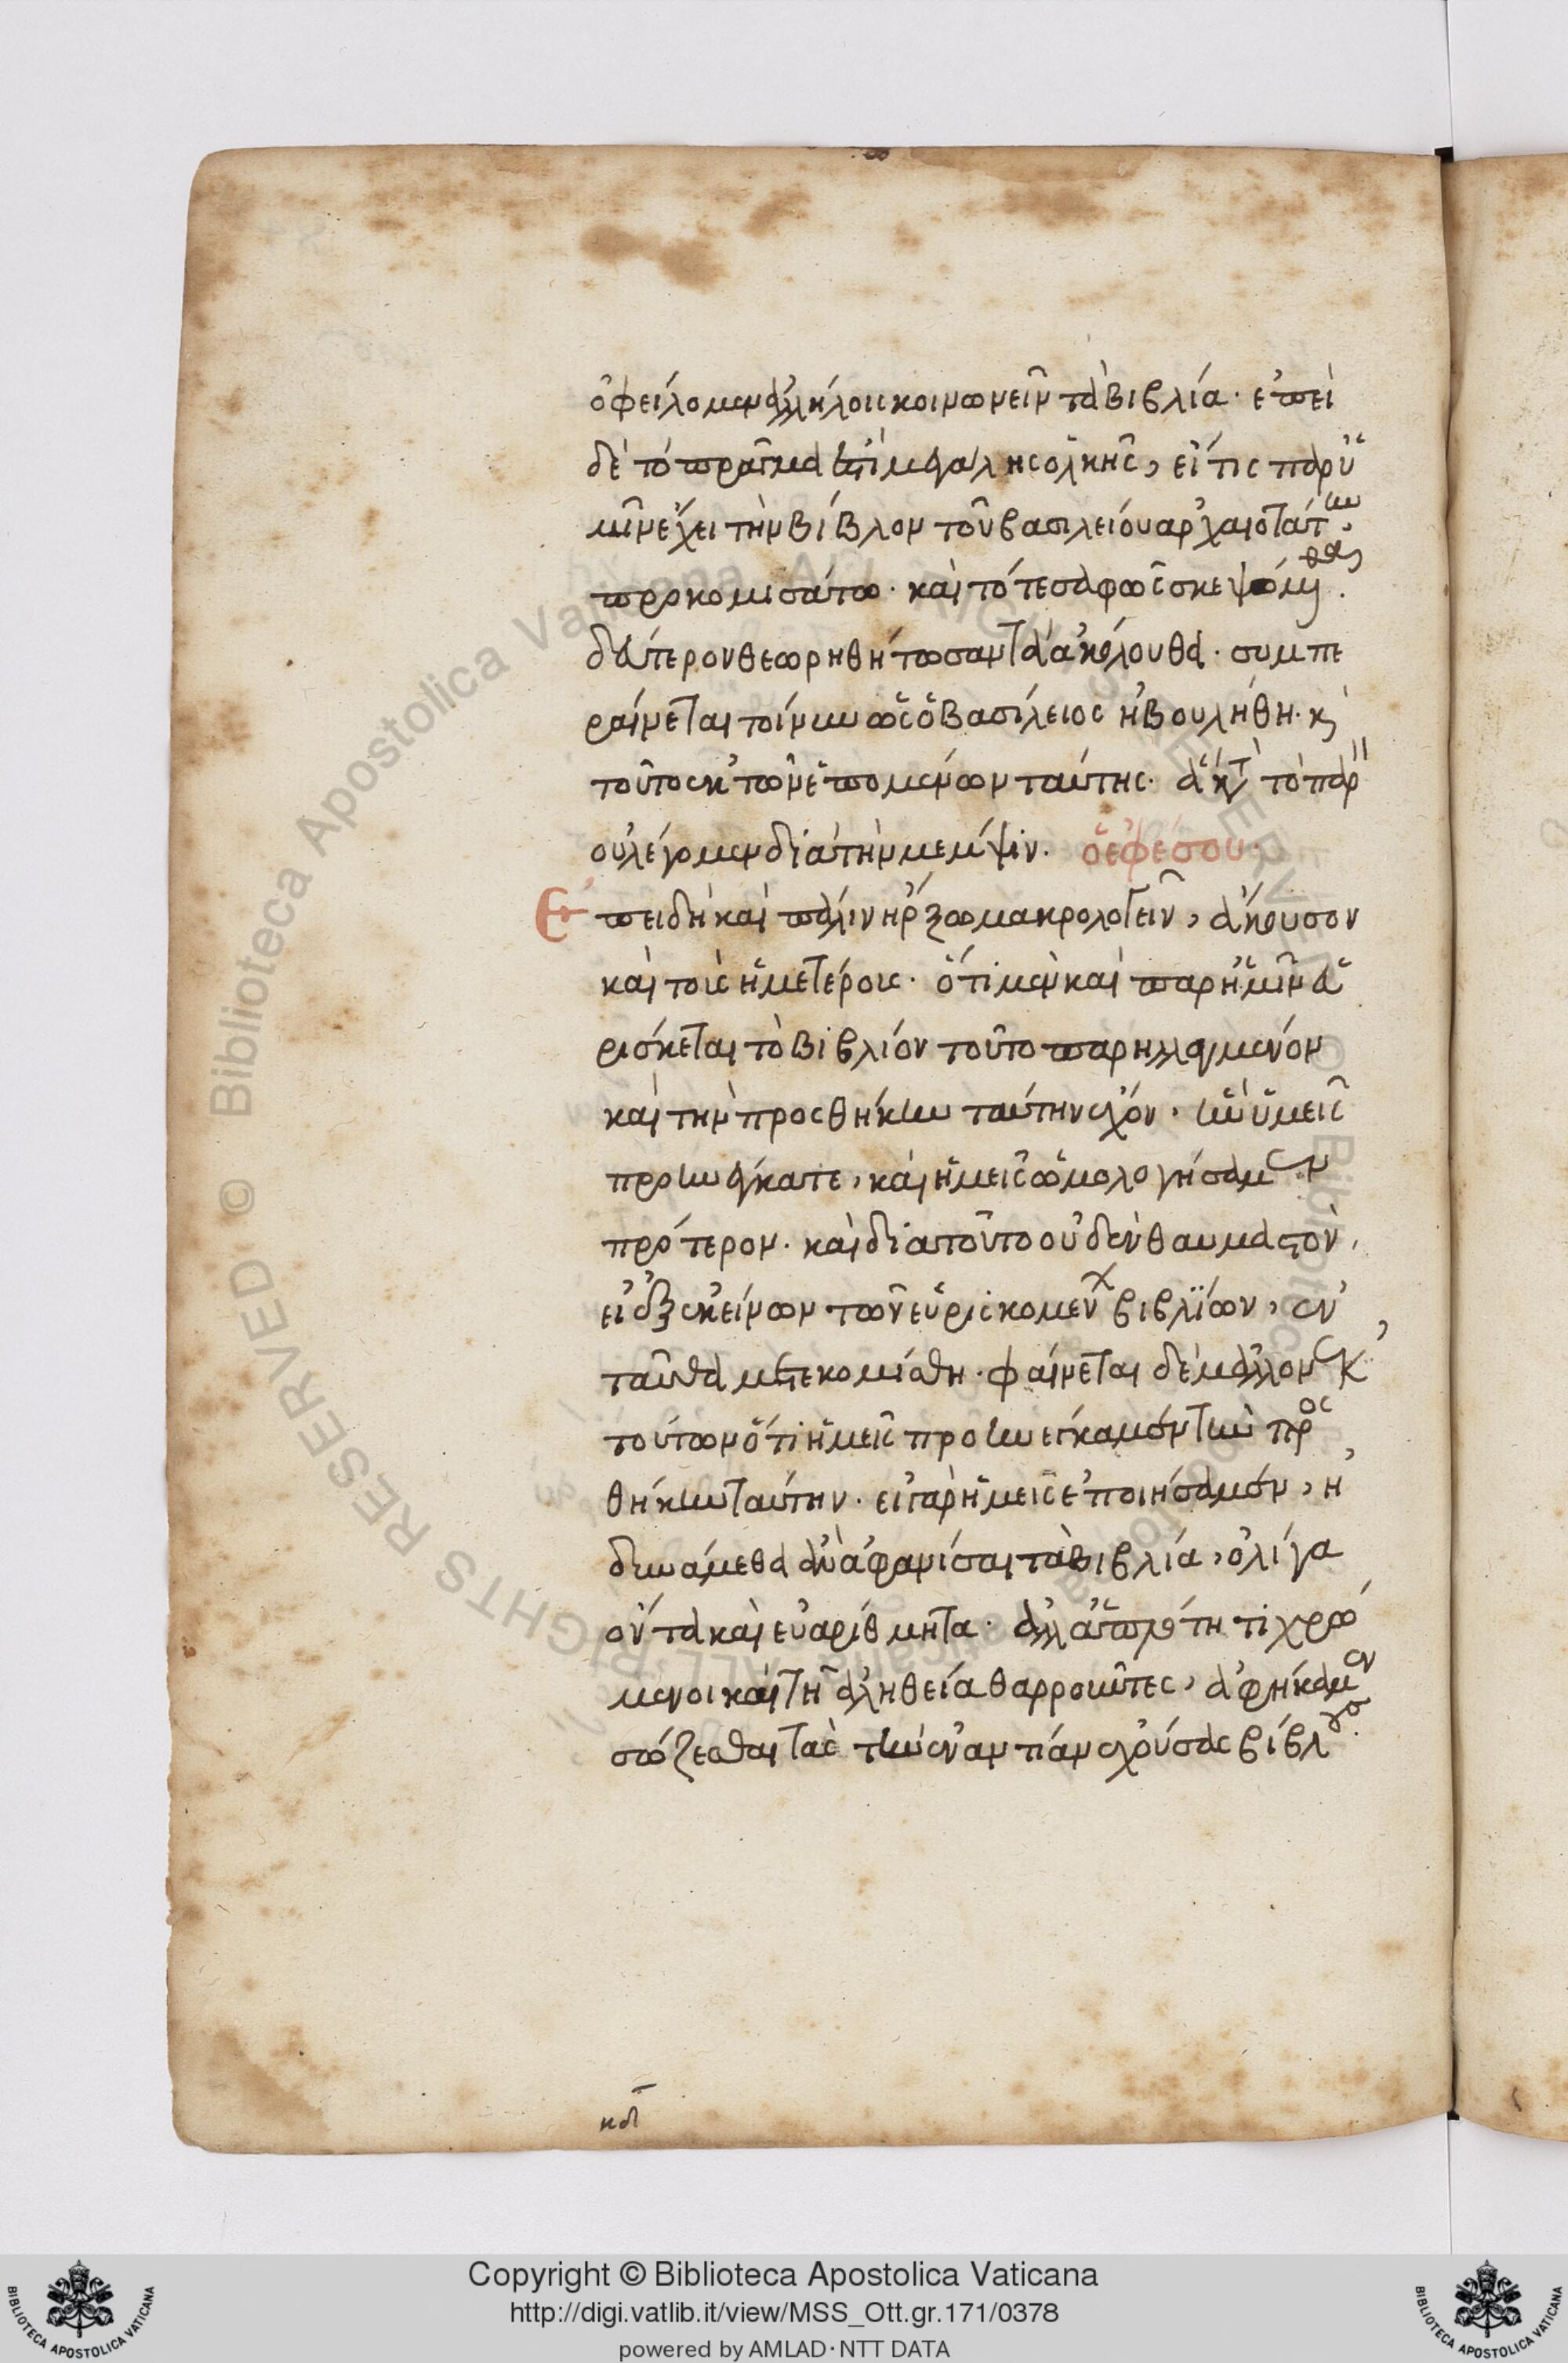 ὀφείλομεν ἀλλήλοις κοινωνεῖν τὰ βιβλία· ἐπεὶ
δὲ τὸ πρᾶγμα ἐπὶ μεγάλης ὁλκῆς, εἴ τις παρ' ὑ
μῖν ἔχει τὴν βίβλον τοῦ βασιλείου ἀρχαιοτάτην,
προκομισάτω· καὶ τότε σαφῶς σκεψόμεθα.
δεύτερον θεωρηθήτωσαν τὰ ἀκόλουθα· συμπε
ραίνεται τοίνυν ὡς ὁ Βασίλειος ἠβουλήθη· κ
τοῦτο ἐκ τῶν ἑπομένων ταύτης· ἃ κτ τὸ παρ
ου λέγομεν διὰ τὴν μέμψιν. ὁ ἐφέσου·
Ἐπειδὴ καὶ πάλιν ἤρξω μακρολογεῖν, ἄκουσον
καὶ τοῖς ἡμετέροις· ὅτι μὲν καὶ παρ' ἡμῖν εὑ
ρίσκεται τὸ βιβλίον τοῦτο παρηλλαγμένον
καὶ τὴν προσθήκην ταύτην ἔχον, ἣν ὑμεῖς
προηνέγκατε, καὶ ἡμεῖς ὡμολογήσαμεν
πρότερον· καὶ διὰ τοῦτο οὐδὲν θαυμαστὸν,
εἰ ἐξ ἐκείνων τῶν εὑρισκομένων βιβλίων, ἐν
ταῦθα μετεκομίσθη· φαίνεται δὲ μᾶλλον ἐκ
τούτων ὅτι ἡμεῖς προσηνείκαμεν τὴν προσ
θήκην ταύτην· εἰ γὰρ ἡμεῖς ἐποιήσαμεν, ἠ
δυνάμεθα ἂν ἀφανίσαι τὰ βιβλία, ὀλίγα
ὄντα καὶ εὐαρίθμητα· ἀλλ' ἁπλότητι χρώ
μενοι καὶ τῇ ἀληθείᾳ θαρροῦντες, ἀφήκαμεν
σώζεσθαι τὰς τὴν ἐναντίαν ἐχούσας βίβλους.
κδ
Copyright © Biblioteca Apostolica Vaticana
http://digi.vatlib.it/view/MSS_Ott.gr.171/0378
powered by AMLAD·NTT DATA